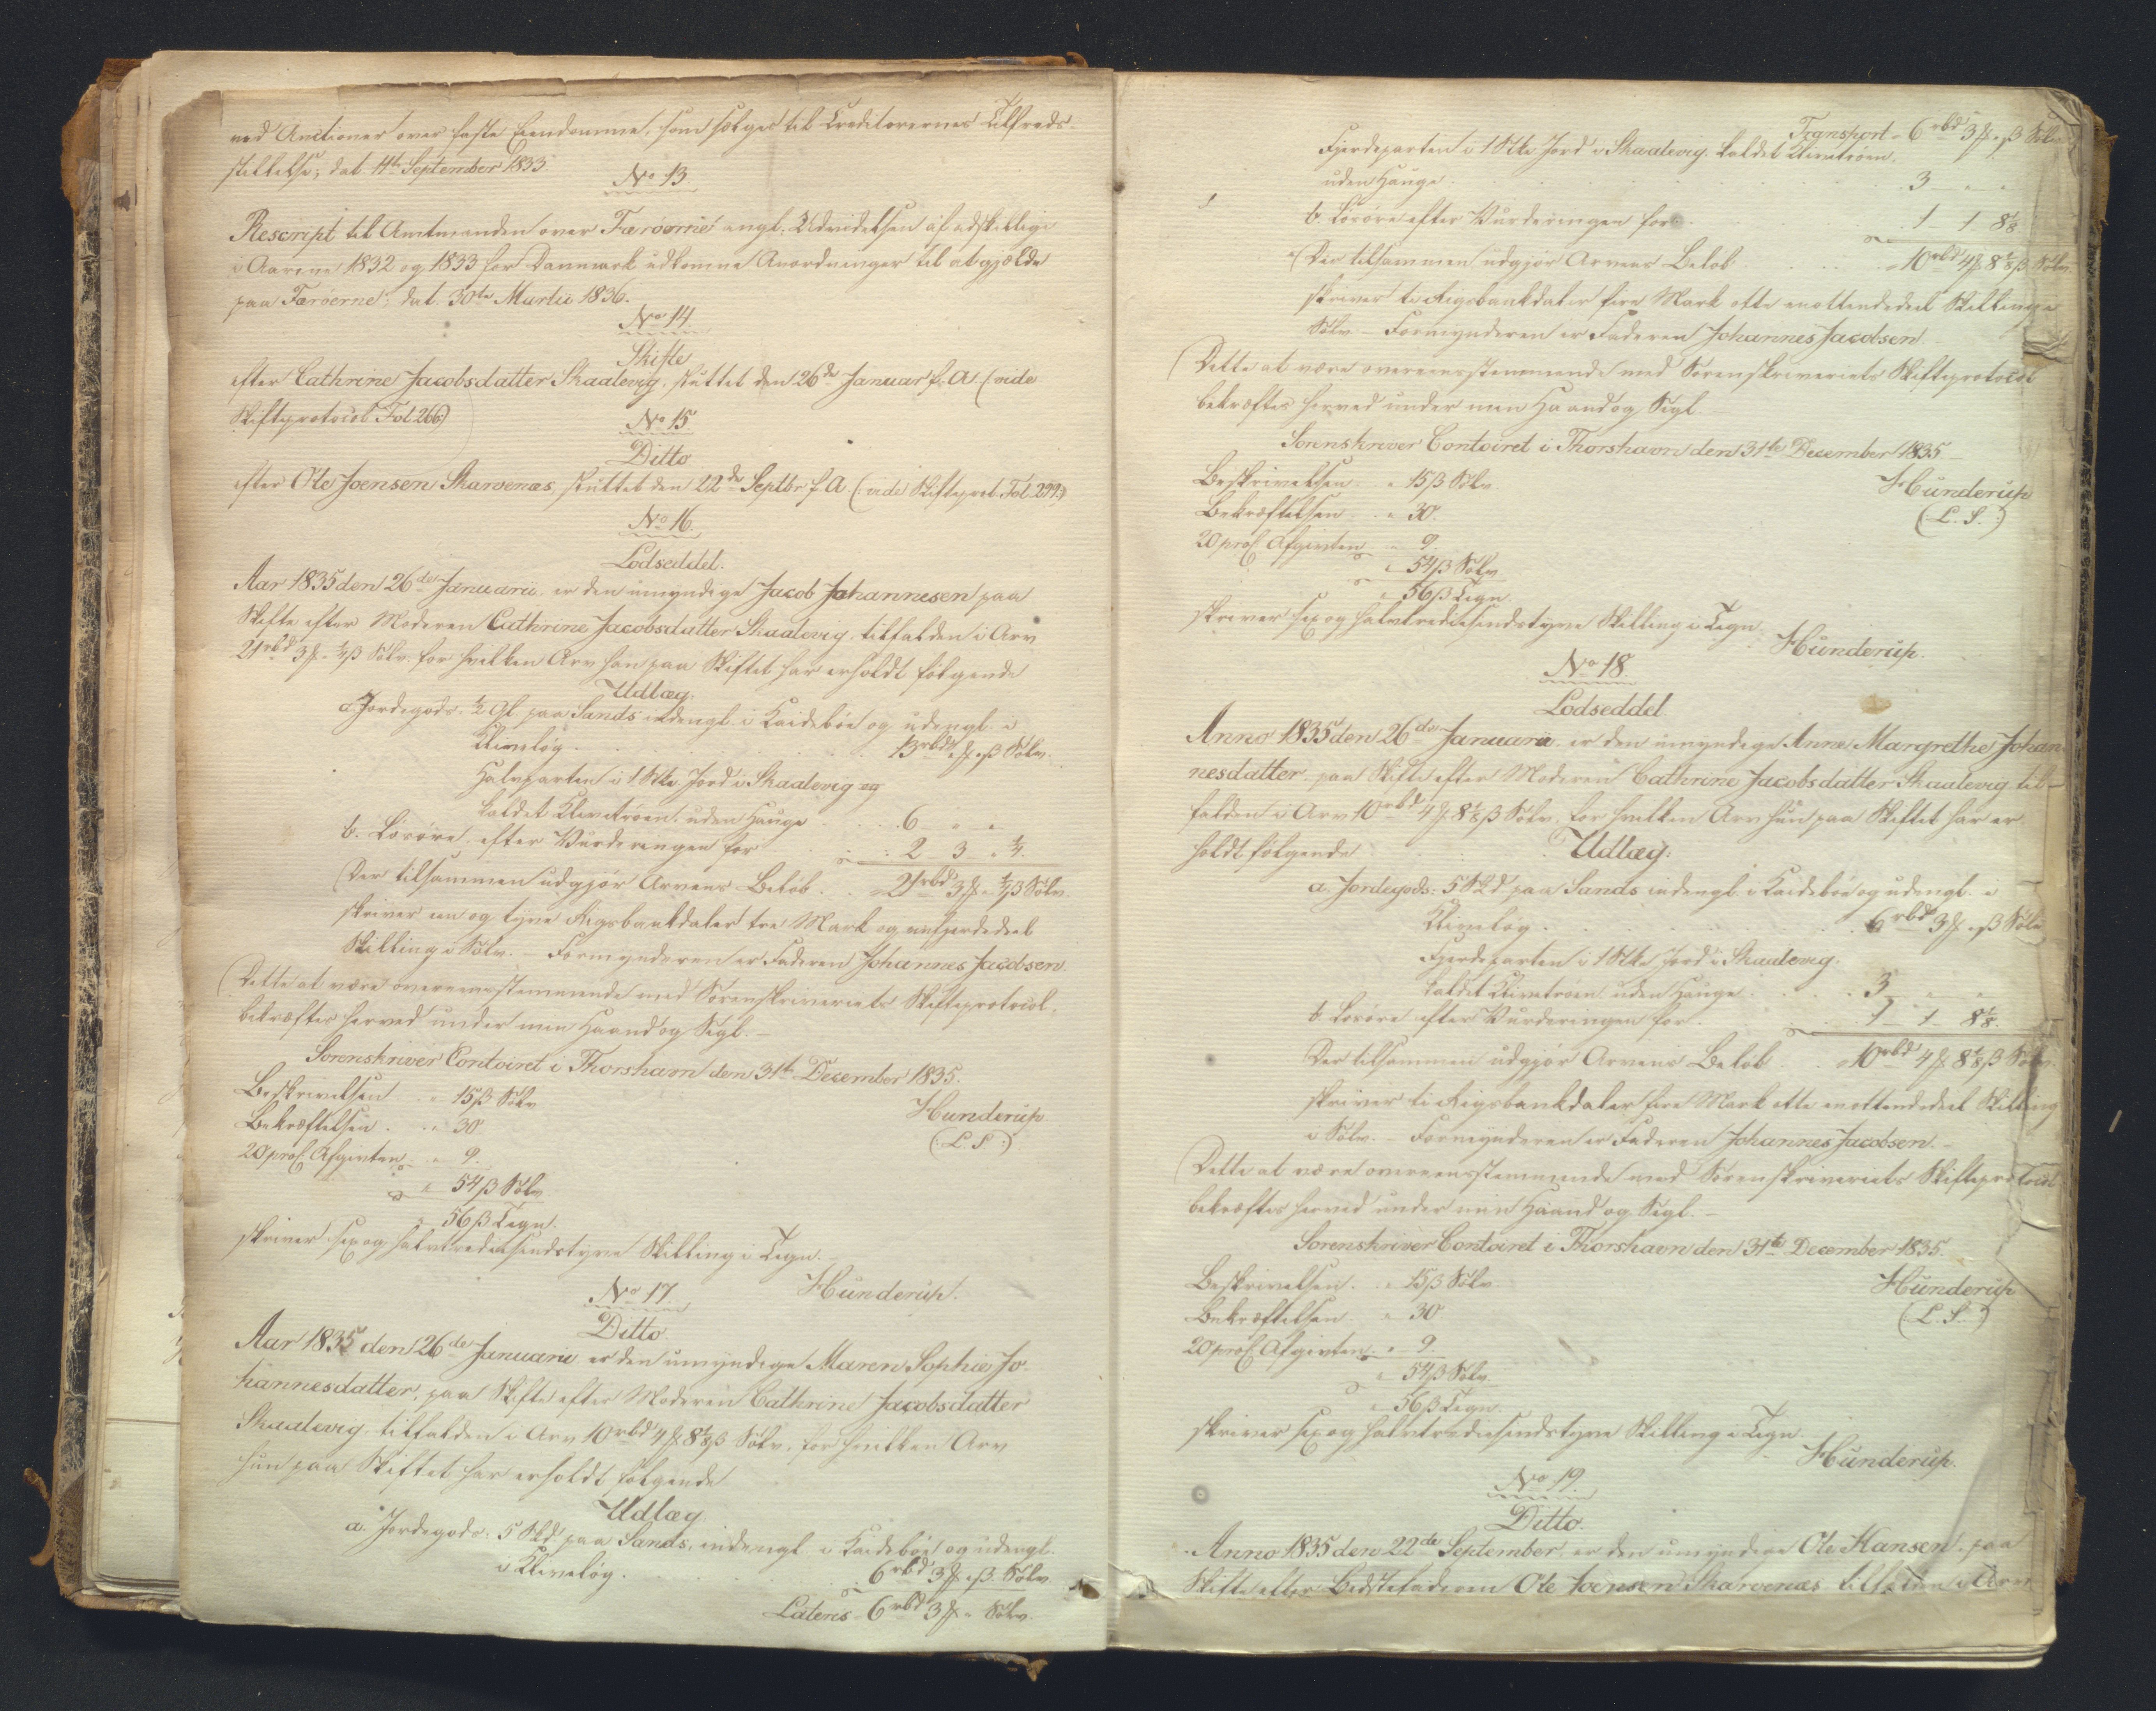 ved Auctioner over faste Eiendomme, som sælges til Creditorernes Tilfreds-
stillelse; dat. 11te September 1833.
No 13
Rescript til Amtmanden over Færøerne angl. Udvidelsen af adskillige
i Aarene 1832 og 1833 for Danmark udkomne Anordninger til at gjælde
paa Færøerne; dat. 30te Martii 1836.
No 14
Skifte
efter Cathrine Jacobsdatter Skaalevig, sluttet den 26de Januar f. A. (vide
Skifteprotocol Fol. 266)
No 15
Ditto
efter Ole Joensen Skarvenæs, sluttet den 22de Septbr f. A (: vide Skifteprot. Fol. 299:)
No 16.
Lodseddel.
Aar 1835 den 26de Januarii er den umyndige Jacob Johannesen paa
Skifte efter Moderen Cathrine Jacobsdatter Skaalevig, tilfalden i Arv
21rbd 3 ℳ „ ¼ β Sølv, for hvilken Arv han paa Skiftet har erholdt følgende
Udlæg:
a. Jordegods: ½ Gl. paa Sands indengl. i Kaidebøe og udengl. i
Kliveløg . . . 13rbd 3 ℳ „ β Sølv.
Halvparten i 1 Stk. Jord i Skaalevig og
kaldet Klivetrøen, uden Hauge . . 6 „ „
b. Løsøre, efter Vurderingen for . . 2 3 „ ¼.
Der tilsammen udgjør Arvens Beløb . . 21rbd 3 ℳ „ ¼ β Sølv.
skriver een og tyve Rigsbankdaler tre Mark og eenfjerdedeel
Skilling i Sølv. – Formynderen er Faderen Johannes Jacobsen.
Dette at være overeensstemmende med Sorenskriveriets Skifteprotocol,
bekræftes herved under min Haand og Segl. –
Sorenskriver Contoiret i Thorshavn den 31te December 1835.
Beskrivelsen . . „ 15 β Sølv
Hunderup
Bekræftelsen . . „ 30
(: L. S :)
20 proC. Afgivten . „ 9.
„ 54 β Sølv
„ 56 β Tegn.
skriver sex og halvtrediesindstyve Skilling i Tegn. –
Hunderup.
No 17.
Ditto.
Aar 1835 den 26de Januarii er den umyndige Maren Sophie Jo-
hannesdatter, paa Skifte efter Moderen Cathrine Jacobsdatter
Skaalevig, tilfalden i Arv 10rbd 4 ℳ 8⅛ β Sølv, for hvilken Arv
hun paa Skiftet har erholdt følgende
Udlæg.
a. Jordegods: 5 Skd. paa Sands, indengl. i Kaidebøe og udengl.
i Kliveløg . . . 6rbd 3 ℳ „ β Sølv
Lateris 6rbd 3 ℳ „ Sølv.
Transport 6rbd 3 ℳ „ β Sølv
Fjerdeparten i 1 Stk. Jord i Skaalevig, kaldet Klivetrøen,
uden Hauge . . . 3 „ „
b. Løsøre efter Vurderingen for . . . 1 1 8⅛
Der tilsammen udgjør Arvens Beløb . . . 10rbd 4 ℳ 8⅛ β Sølv.
skriver ti Rigsbankdaler fire Mark otte enottendedeel Skilling i
Sølv – Formynderen er Faderen Johannes Jacobsen. –
Dette at være overeensstemmende med Sorenskriveriets Skifteprotocol
bekræftes herved under min Haand og Segl. –
Sorenskriver Contoiret i Thorshavn den 31te December 1835 –
Beskrivelsen . . „ 15 β Sølv
Hunderup
Bekræftelsen . . „ 30.
(: L. S. :)
20 proC. Afgivten „ 9.
„ 54 β Sølv
„ 56 β Tegn.
skriver sex og halvtrediesindstyve Skilling i Tegn.
Hunderup.
No 18.
Lodseddel.
Anno 1835 den 26de Januarii er den umyndige Anne Margrethe Johan-
nesdatter paa Skifte efter Moderen Cathrine Jacobsdatter Skaalevig til-
falden i Arv 10rbd 4 ℳ 8⅛ β Sølv, for hvilken Arv hun paa Skiftet har er-
holdt følgende
Udlæg:
a. Jordegods: 5 Skd paa Sands indengl. i Kaidebøe og udengl. i
Kliveløg . . . 6rbd 3 ℳ „ β Sølv
Fjerdeparten i 1 Stk. Jord i Skaalevig.
kaldet Klivetrøen uden Hauge . . . 3 „ „
b. Løsøre efter Vurderingen for . . . 1 1 8⅛.
Der tilsammen udgjør Arvens Beløb . . . 10rbd 4 ℳ 8⅛ β Sølv.
skriver ti Rigsbankdaler fire Mark otte enottendedeel Skilling
i Sølv. – Formynderen er Faderen Johannes Jacobsen. –
Dette at være overeensstemmende med Sorenskriveriets Skifteprotocol
bekræftes herved under min Haand og Segl. –
Sorenskriver Contoiret i Thorshavn den 31te December 1835.
Beskrivelsen . . „ 15 β Sølv
Hunderup
Bekræftelsen „ 30
(: L. S. :)
20 proC. Afgivten . „ 9.
„ 54 β Sølv
„ 56 β Tegn.
skriver sex og halvtrediesindstyve Skilling i Tegn.
Hunderup.
No 19.
Ditto.
Anno 1835 den 22de September er den umyndige Ole Hansen, paa
Skifte efter Bedstefaderen Ole Joensen Skarvenæs tilfalden i Arv